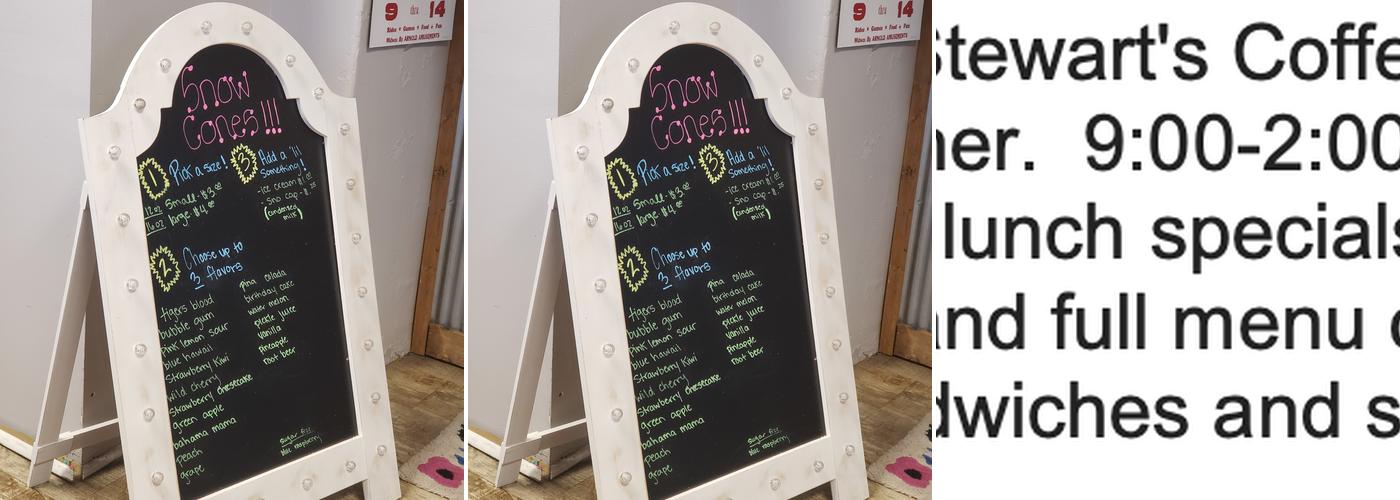 9 thru 14
Rides * Games * Food * Fun
Midway By ARNOLD AMUSEMENTS
Snow
Cones!!!
1 Pick a size!
12 oz Small - $3.00
16 oz large $4.00
3 Add a 'lil
Something!
- ice cream $1.00
- Sno cap - $.25
(condensed
milk)
2 Choose up to
3 flavors
tigers blood
bubble gum
pink lemon sour
blue hawaii
Strawberry Kiwi
wild cherry
Strawberry cheesecake
green apple
bahama mama
Peach
grape
Pina colada
birthday cake
water melon
pickle juice
Vanilla
Pineapple
root beer
Sugar free
blue raspberry
9 thru 14
Rides * Games * Food * Fun
Midway By ARNOLD AMUSEMENTS
Snow
Cones!!!
1 Pick a size!
12 oz Small - $3.00
16 oz large $4.00
3 Add a 'lil
Something!
- ice cream $1.00
- Sno cap - $.25
(condensed
milk)
2 Choose up to
3 flavors
tigers blood
bubble gum
pink lemon sour
blue hawaii
Strawberry Kiwi
wild cherry
Strawberry cheesecake
green apple
bahama mama
Peach
grape
Pina colada
birthday cake
water melon
pickle juice
Vanilla
Pineapple
root beer
Sugar free
blue raspberry
Stewart's Coffe
ner. 9:00-2:00
lunch specials
and full menu
dwiches and s